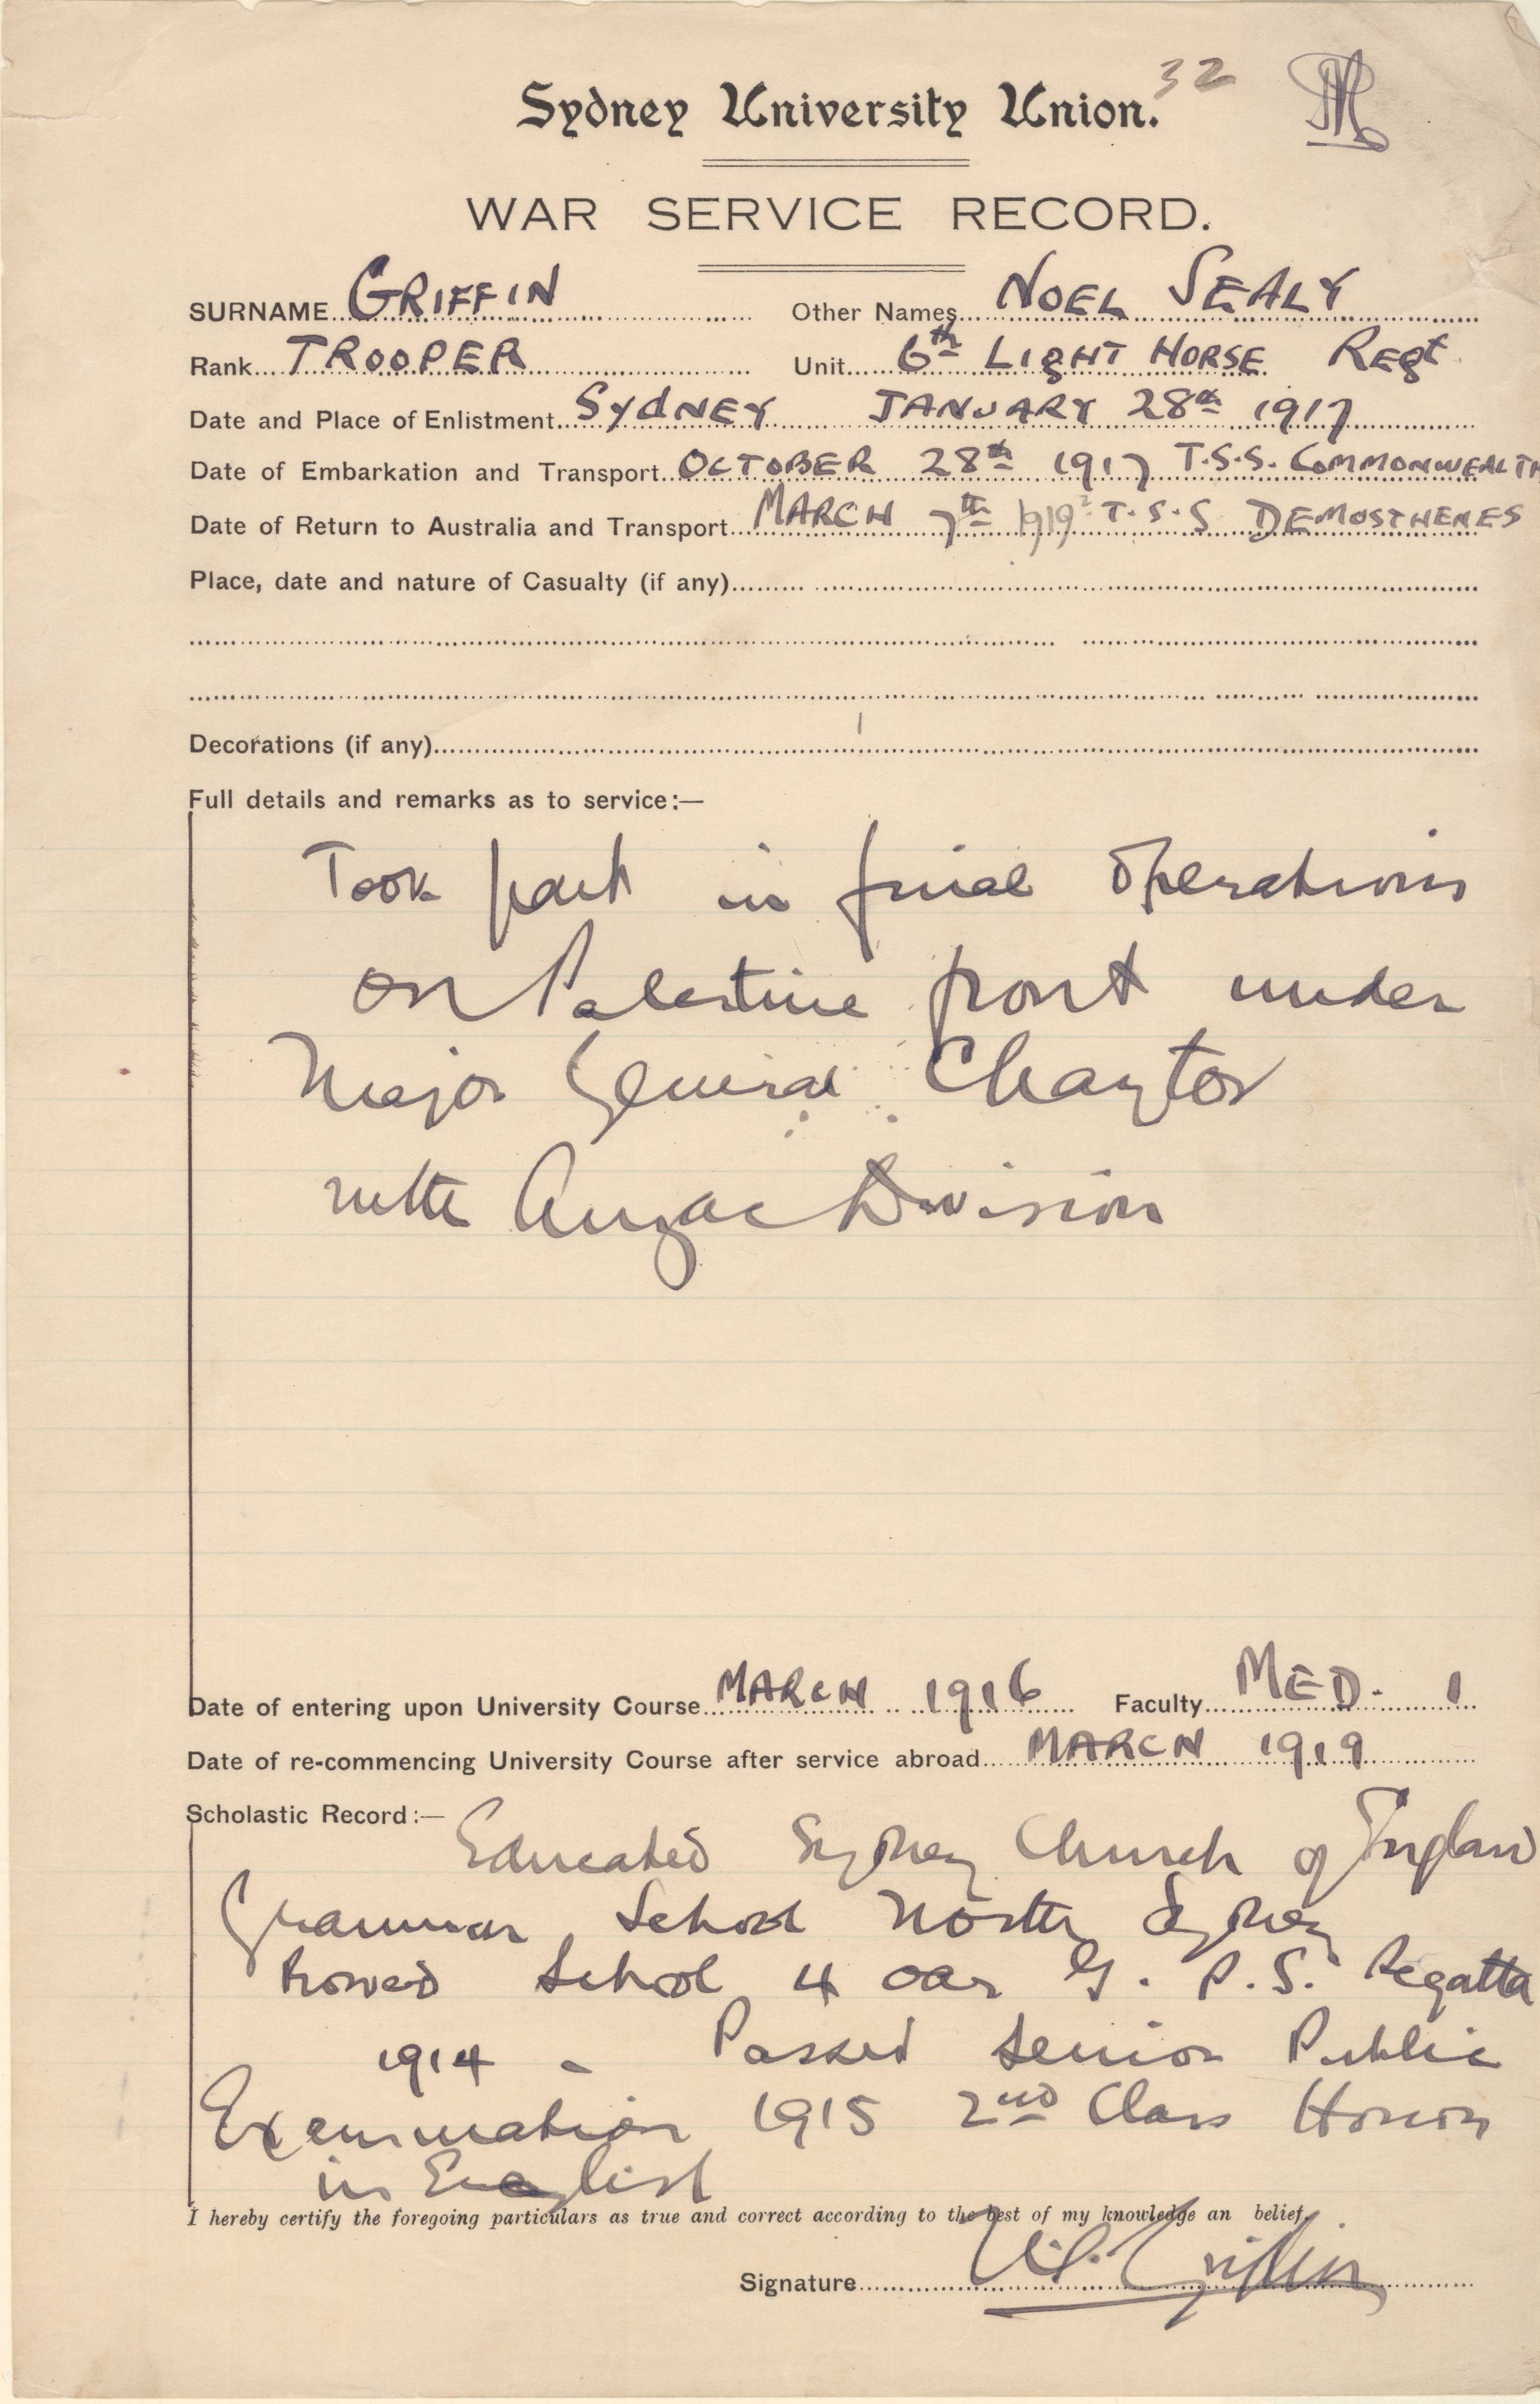 32
Sydney University Union.
WAR SERVICE RECORD.
SURNAME GRIFFIN Other Names NOEL SEALY
Rank TROOPER Unit 6th LIGHT HORSE REGT
Date and Place of Enlistment SYDNEY JANUARY 28th 1917
Date of Embarkation and Transport OCTOBER 28th 1917 T.S.S. COMMONWEALTH
Date of Return to Australia and Transport MARCH 7th 1919 T.S.S DEMOSTHENES
Place, date and nature of Casualty (if any)
Decorations (if any)
Full details and remarks as to service:—
Took part in final operations
on Palestine front under
Major General Chaytor
with Anzac Division
Date of entering upon University Course MARCH 1916 Faculty MED. 1
Date of re-commencing University Course after service abroad MARCH 1919
Scholastic Record:—
Educated Sydney Church of England
Grammar School North Sydney
Rowed School 4 oar G.P.S. Regatta
1914 - Passed Senior Public
Examination 1915 2nd Class Honors
in English
I hereby certify the foregoing particulars as true and correct according to the best of my knowledge an belief.
Signature N.S. Griffin